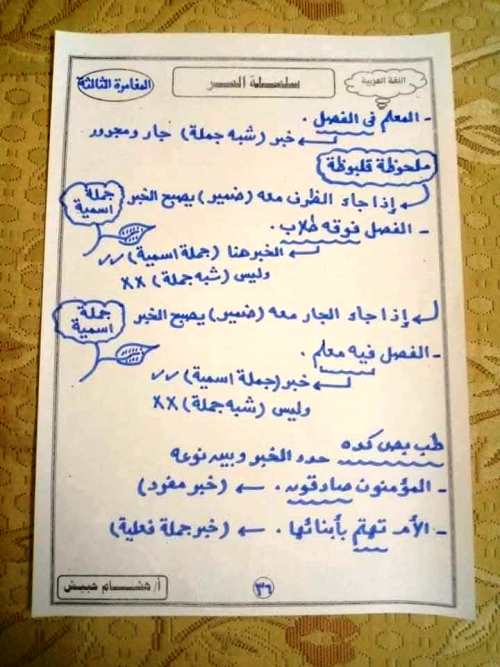 اللغة العربية
سلسلة السر
المغامرة الثالثة
- المعلم في الفصل.
خبر (شبه جملة) جار ومجرور
ملحوظة قلبوظة
إذا جاء الظرف معه (ضمير) يصبح الخبر جملة اسمية
- الفصل فوقه طلاب.
الخبر هنا (جملة اسمية) ✓✓
وليس (شبه جملة) XX
إذا جاء الجار معه (ضمير) يصبح الخبر جملة اسمية
- الفصل فيه معلم.
خبر (جملة اسمية) ✓✓
وليس (شبه جملة) XX
طب بص كده حدد الخبر وبين نوعه
- المؤمنون صادقون. ← (خبر مفرد)
- الأم تهتم بأبنائها. ← (خبر جملة فعلية)
٣٦
أ/ هشام حبيش